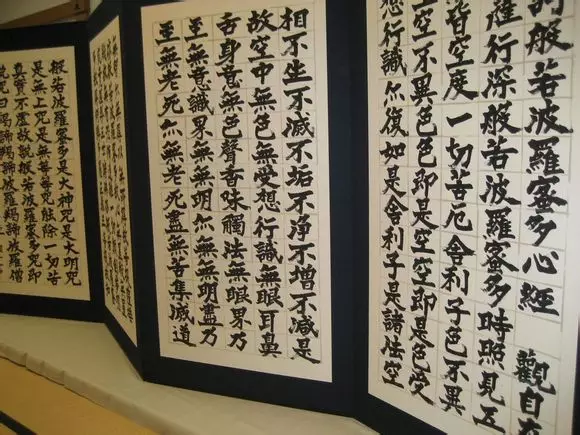 訶般若波羅蜜多心經 觀自在
薩行深般若波羅蜜多時照見五
皆空度一切苦厄舍利子色不異
空不異色色即是空空即是色受
想行識亦復如是舍利子是諸法空
相不生不滅不垢不浄不增不減是
故空中無色無受想行識無眼耳鼻
舌身意無色聲香味觸法無眼界乃
至無意識界無無明亦無無明盡乃
至無老死亦無老死盡無苦集滅道
般若波羅蜜多是大神咒是大明咒
是無上咒是無等等咒能除一切苦
真實不虛故說般若波羅蜜多咒即
說咒曰羯諦羯諦波羅羯諦波羅僧